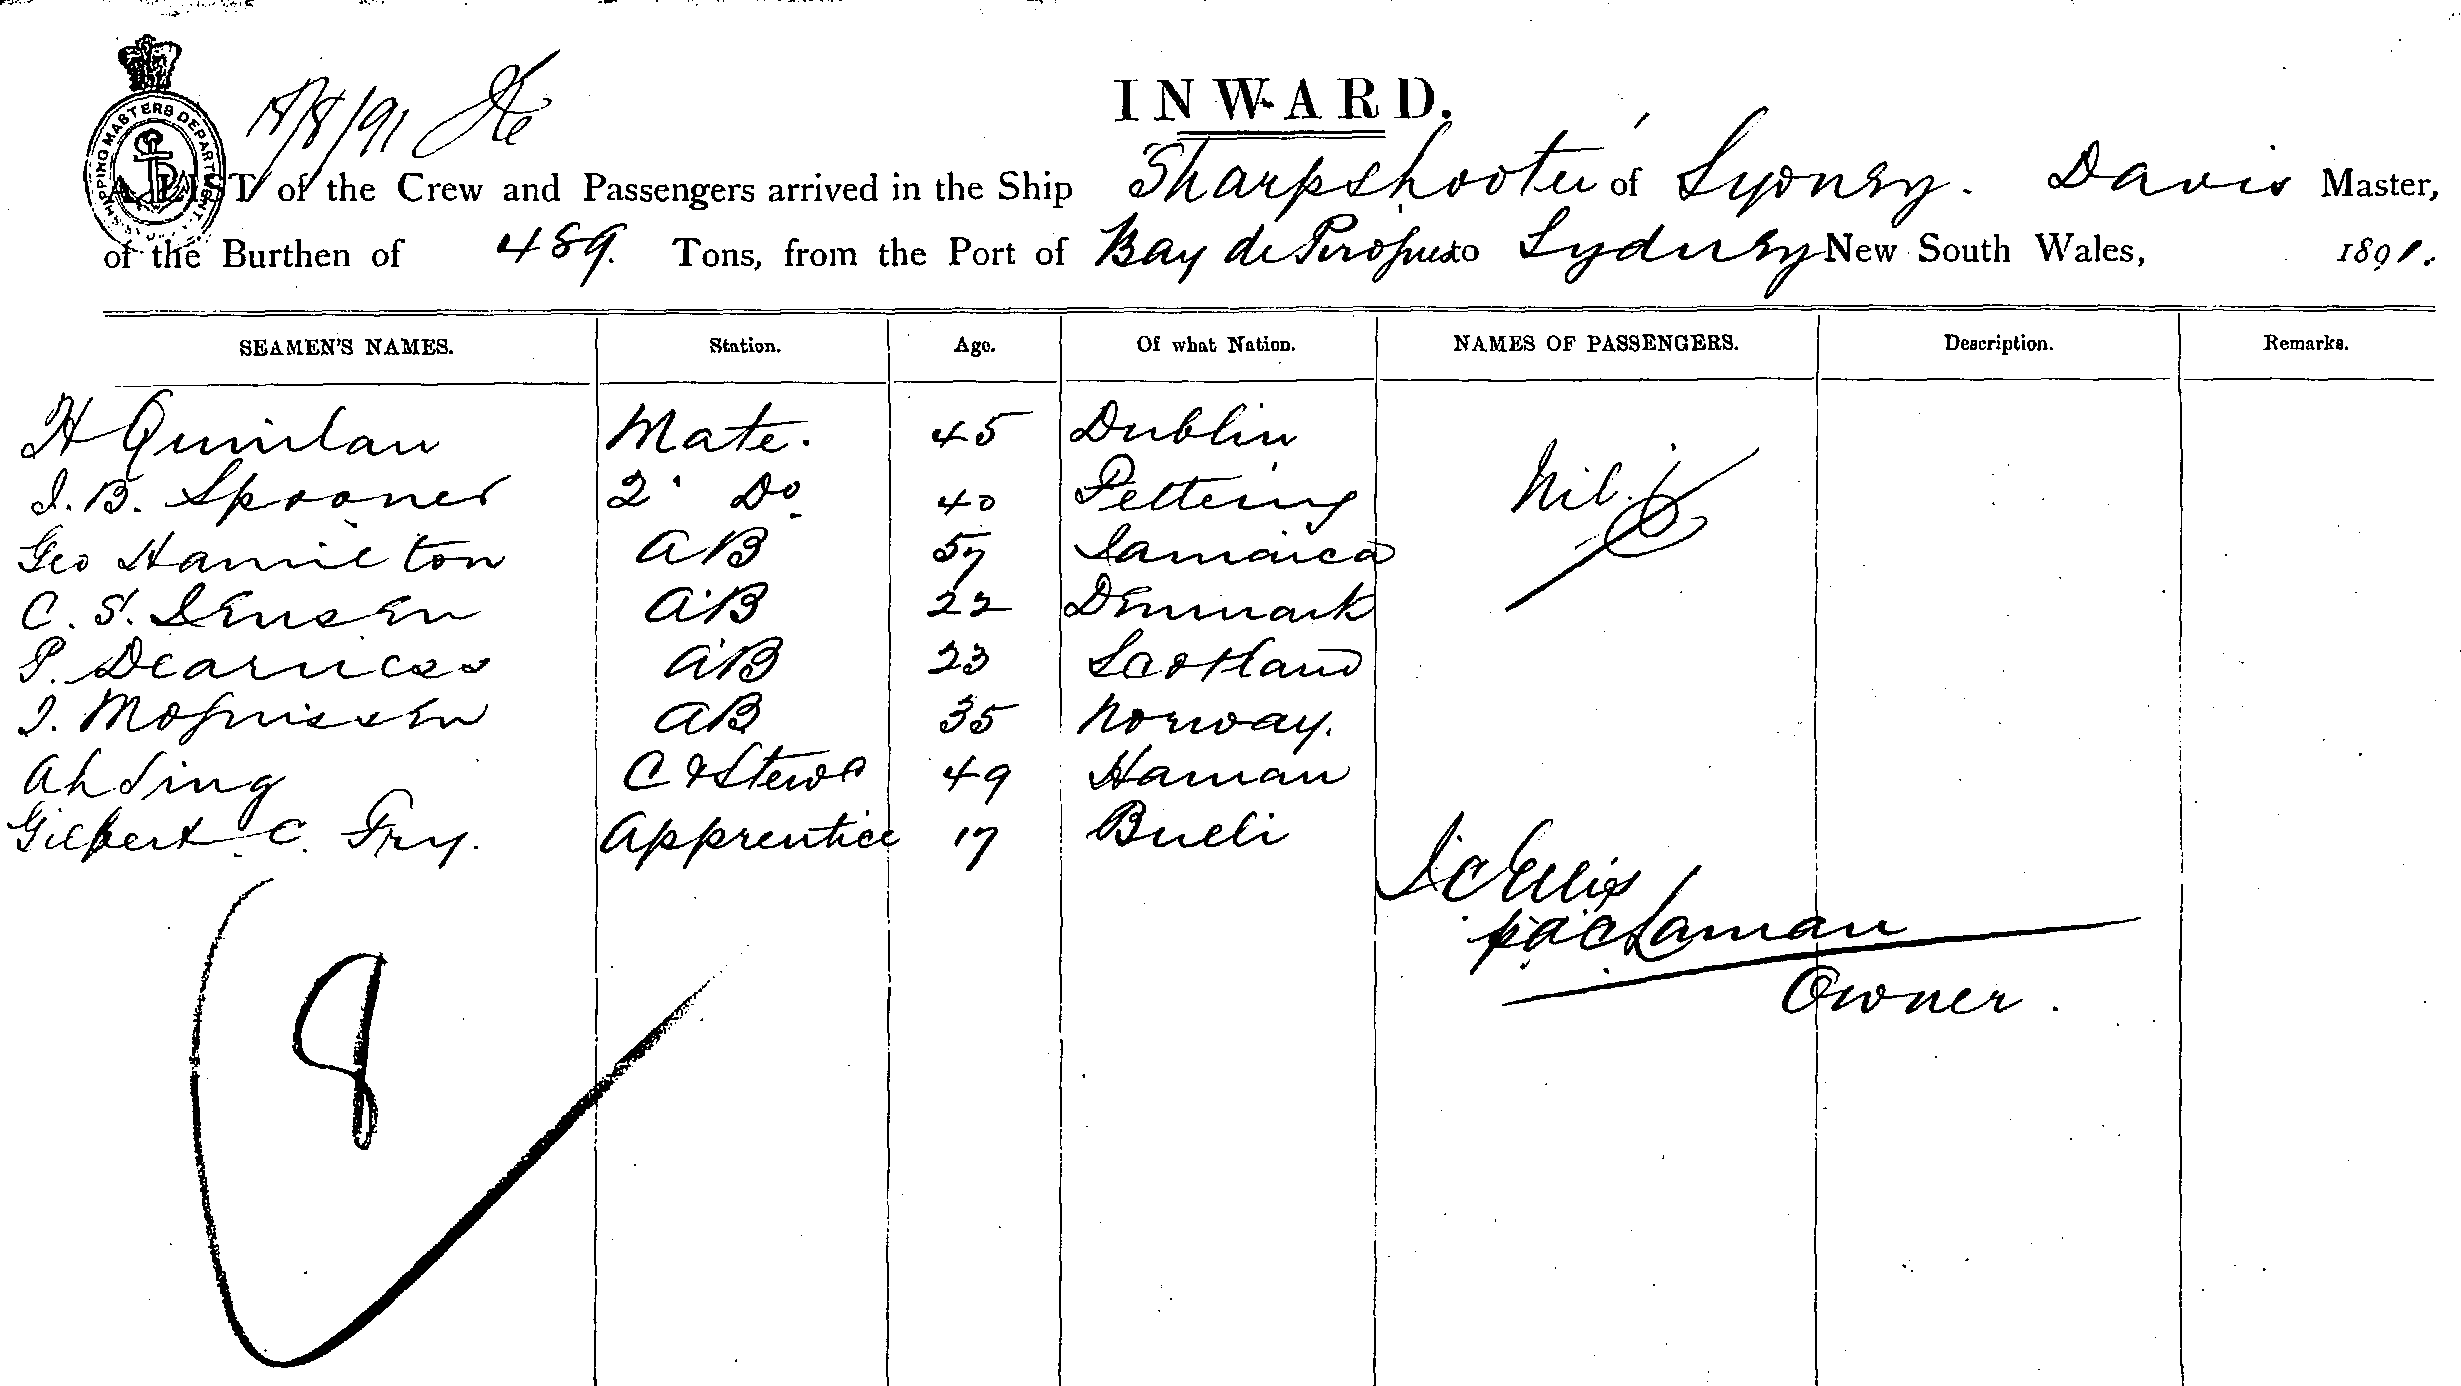 SHIPPING MASTERS DEPARTMENT
18/8/91
INWARD.
A LIST of the Crew and Passengers arrived in the Ship Sharpshooter of Sydney. Davis Master,
of the Burthen of 489. Tons, from the Port of Bay de to Sydney New South Wales, 1891.
SEAMEN'S NAMES. Station. Age. Of what Nation. NAMES OF PASSENGERS. Description. Remarks.
H Quinlan Mate. 45 Dublin
J. B. Spooner 2 Do 40 Nil.
Geo Hamilton AB 57 Jamaica
C. S. Jensen AB 22 Denmark
P. Dearness AB 23 Scotland
J. Mognissen AB 35 Norway.
Ah Sing C & Stewd 49
Gilbert C. Fry. Apprentice 17
J C Ellis
Laman
Owner.
8